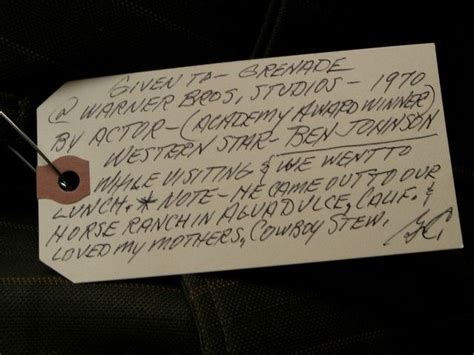 GIVEN TO - GRENADE
@ WARNER BROS, STUDIOS - 1970
BY ACTOR - (ACADEMY AWARD WINNER)
WESTERN STAR - BEN JOHNSON
WHILE VISITING & WE WENT TO
LUNCH. * NOTE - HE CAME OUT TO OUR
HORSE RANCH IN AGUA DULCE, CALIF. &
LOVED MY MOTHERS, COWBOY STEW.